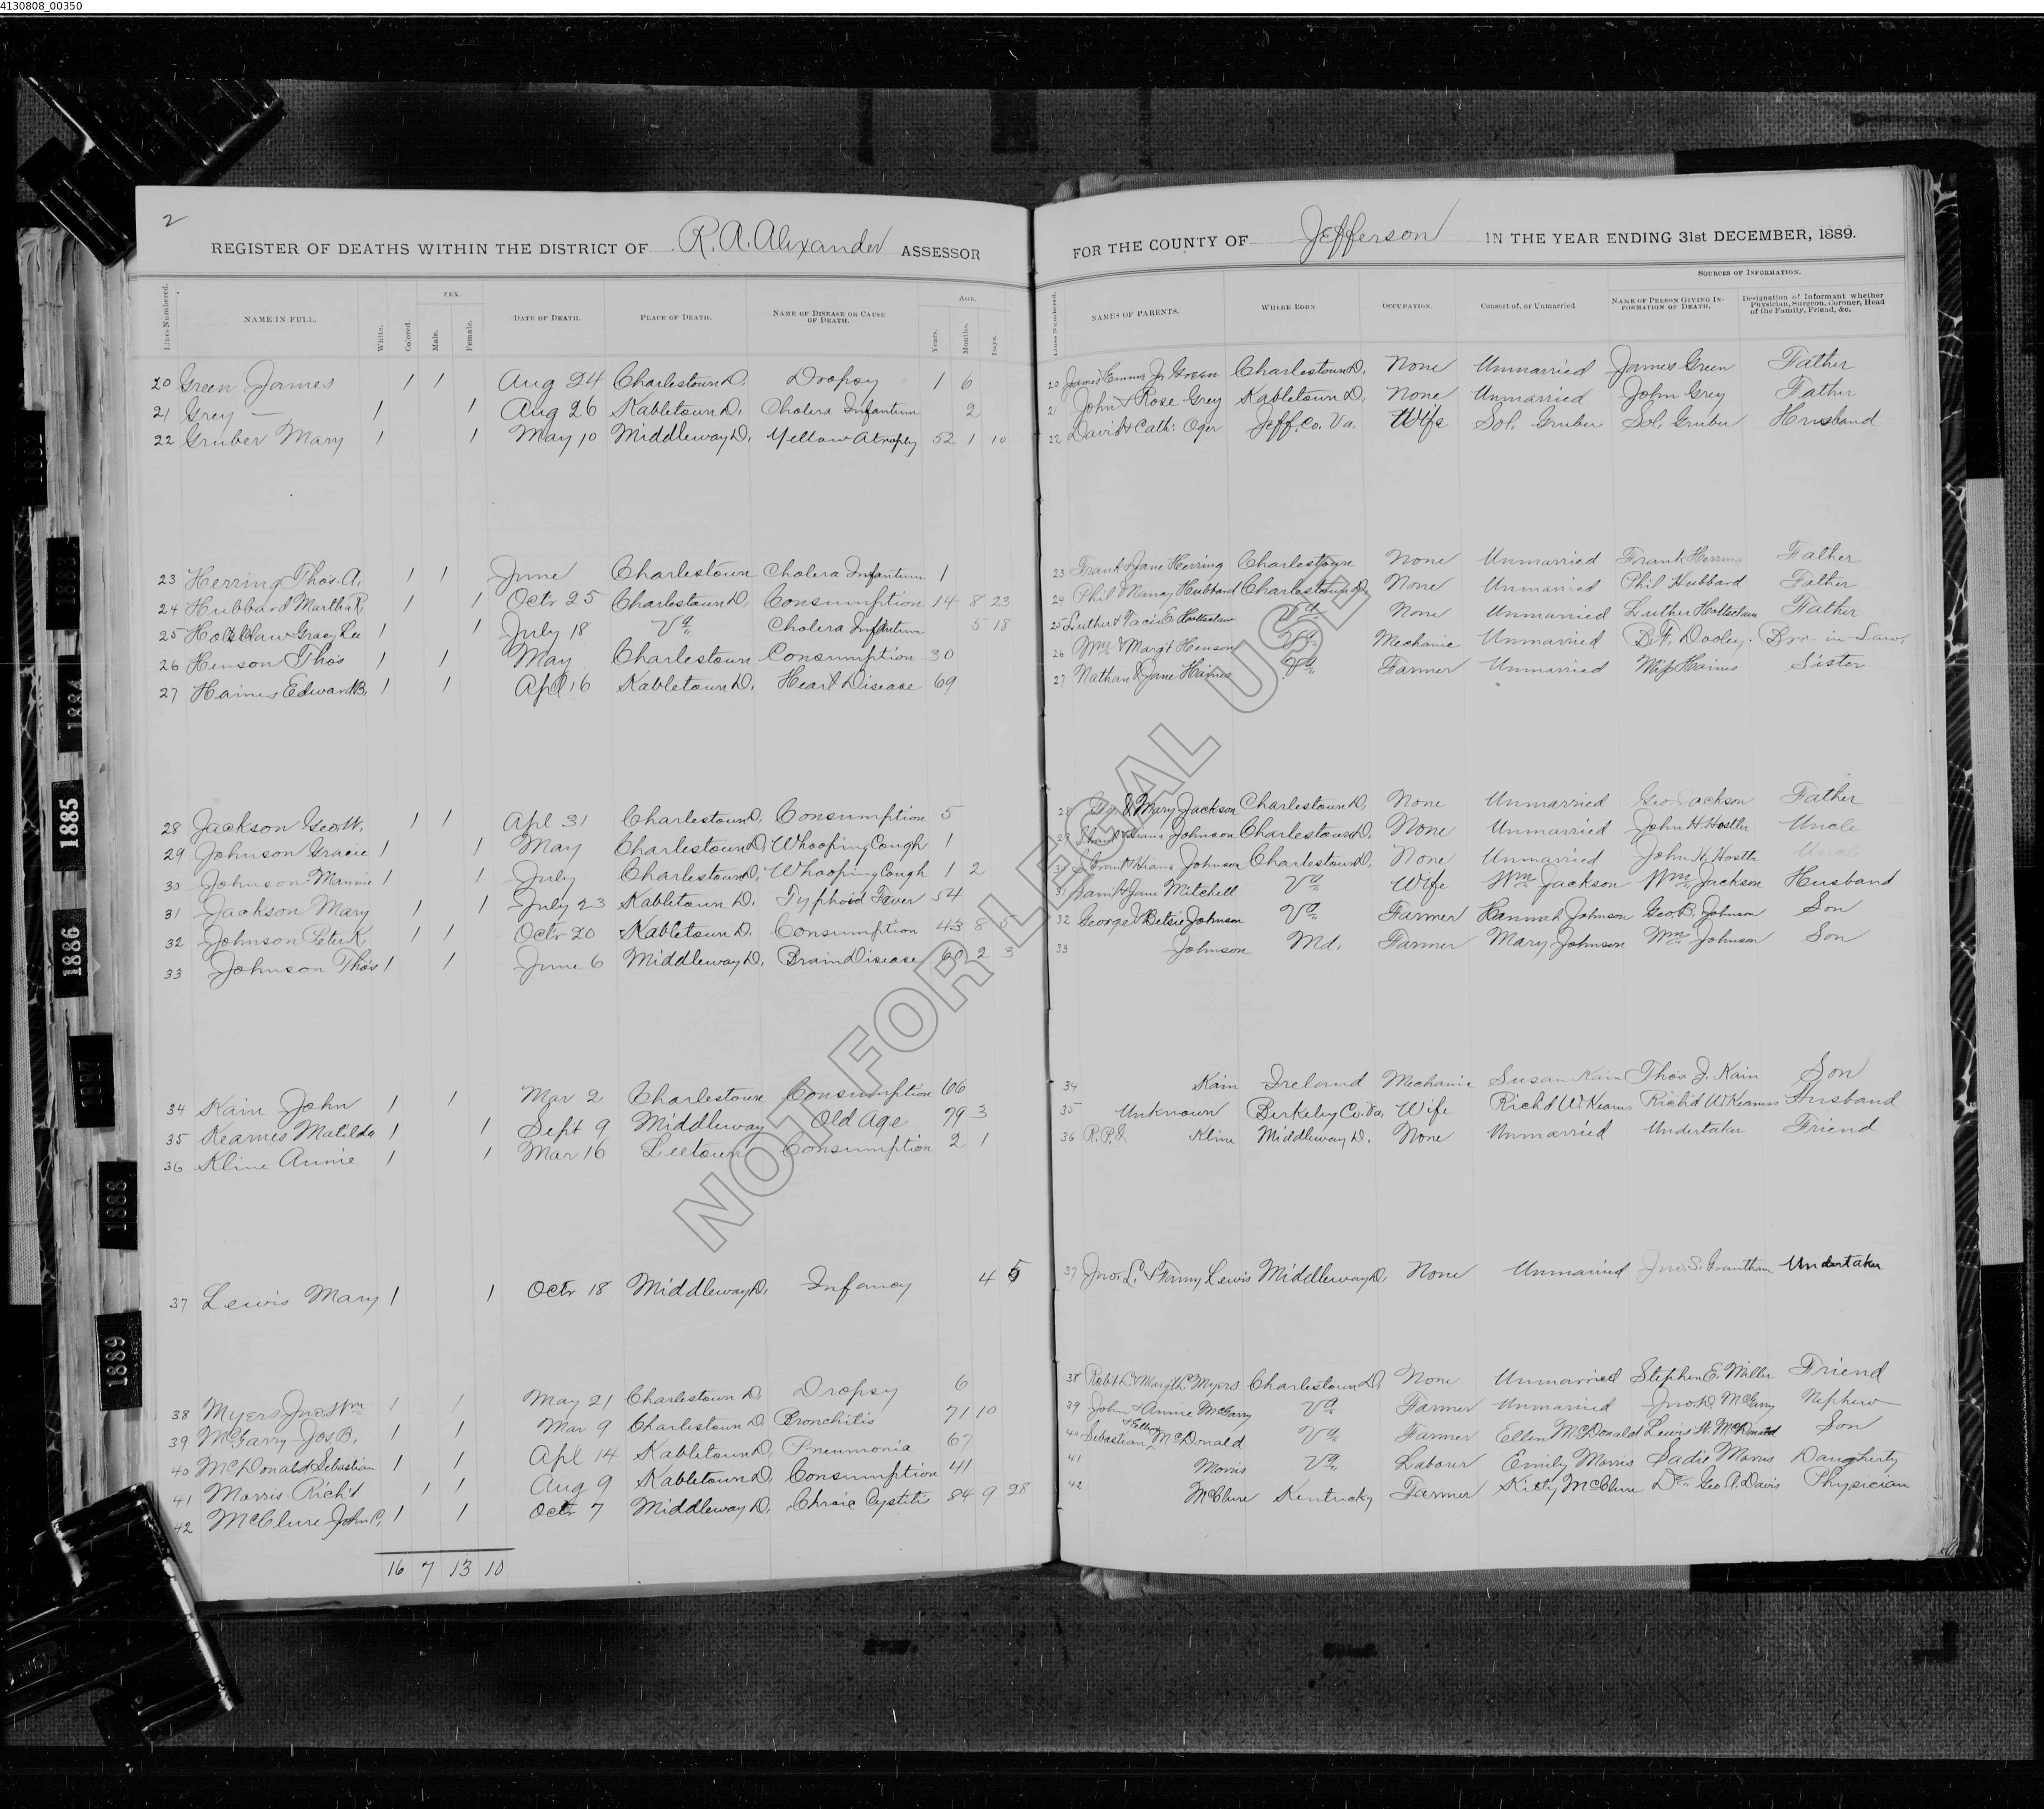 4130808_00350
2
REGISTER OF DEATHS WITHIN THE DISTRICT OF R. A. Alexander ASSESSOR
Lines Numbered. NAME IN FULL. White. Colored. SEX. Male. Female. DATE OF DEATH. PLACE OF DEATH. NAME OF DISEASE OR CAUSE OF DEATH. AGE. Years. Months. Days.
20 Green James 1 1 Aug 24 Charlestown D. Dropsy 1 6
21 Grey — 1 1 Aug 26 Kabletown D. Cholera Infantum 2
22 Gruber Mary 1 1 May 10 Middleway D. Yellow Atrophy 52 1 10
23 Herring Thos. A. 1 1 June Charlestown Cholera Infantum 1
24 Hubbard Martha R. 1 1 Octr 25 Charlestown D. Consumption 14 8 23
25 Gracy Lee 1 1 July 18 Va Cholera Infantum 5 18
26 Henson Thos 1 1 May Charlestown Consumption 30
27 Haines Edward B. 1 1 Apl 16 Kabletown D. Heart Disease 69
28 Jackson Geo W. 1 1 Apl 31 Charlestown D. Consumption 5
29 Johnson Gracie 1 1 May Charlestown D. Whooping Cough 1
30 Johnson Mannie 1 1 July Charlestown D. Whooping Cough 1 2
31 Jackson Mary 1 1 July 23 Kabletown D. Typhoid Fever 54
32 Johnson Peter K. 1 1 Octr 20 Kabletown D. Consumption 43 8 5
33 Johnson Thos 1 1 June 6 Middleway D. Brain Disease 60 2 3
34 Kain John 1 1 Mar 2 Charlestown Consumption 66
35 Kearnes Matilda 1 1 Sept 9 Middleway Old Age 79 3
36 Kline Annie 1 1 Mar 16 Leetown Consumption 2 1
37 Lewis Mary 1 1 Octr 18 Middleway D. Infancy 4 5
38 Myers Jno. Wm 1 1 May 21 Charlestown D. Dropsy 6
39 McGarry Jos. B. 1 1 Mar 9 Charlestown D. Bronchitis 71 10
40 McDonald Sebastian 1 1 Apl 14 Kabletown D. Pneumonia 67
41 Morris Rich'd 1 1 Aug 9 Kabletown D. Consumption 41
42 McClure John C. 1 1 Octr 7 Middleway D. Chroic Cystitis 84 9 28
16 7 13 10
FOR THE COUNTY OF Jefferson IN THE YEAR ENDING 31st DECEMBER, 1889.
SOURCES OF INFORMATION.
Lines Numbered. NAMES OF PARENTS. WHERE BORN OCCUPATION. Consort of, or Unmarried NAME OF PERSON GIVING INFORMATION OF DEATH. Designation of Informant whether Physician, Surgeon, Coroner, Head of the Family, Friend, &c.
20 James & Emma J. Green Charlestown D. None Unmarried James Green Father
21 John & Rose Grey Kabletown D. None Unmarried John Grey Father
22 David & Cath: Oger Jeff. Co. Va. Wife Sol. Gruber Sol. Gruber Husband
23 Frank & Jane Herring Charlestown None Unmarried Frank Herring Father
24 Phil & Nancy Hubbard Charlestown D. None Unmarried Phil Hubbard Father
25 Luther & E. Holtsclaw Va None Unmarried Luther Holtsclaw Father
26 Wm & Marg't Henson Va Mechanic Unmarried B. F. Dooley. Bro-in-Law.
27 Nathan & Jane Haines Va Farmer Unmarried Miss Haines Sister
28 Geo. & Mary Jackson Charlestown D. None Unmarried Geo. Jackson Father
29 Johnson Charlestown D. None Unmarried John H. Hostler Uncle
30 Johnson Charlestown D. None Unmarried John H. Hostler Uncle
31 Sam'l & Jane Mitchell Va Wife Wm Jackson Wm Jackson Husband
32 George & Betsie Johnson Va Farmer Hannah Johnson Geo. B. Johnson Son
33 Johnson Md. Farmer Mary Johnson Wm Johnson Son
34 Kain Ireland Mechanic Susan Kain Thos J. Kain Son
35 Unknown Berkeley Co. Va. Wife Rich'd W. Kearns Rich'd W. Kearnes Husband
36 R. P. & Kline Middleway D. None Unmarried Undertaker Friend
37 Jno. L. & Fanny Lewis Middleway D. None Unmarried Jno. S. Grantham Undertaker
38 Rob't L. & Marg't L. Myers Charlestown D. None Unmarried Stephen E. Miller Friend
39 John & Annie McGarry Va Farmer Unmarried Jno. D. McGarry Nephew
40 Sebastian McDonald Va Farmer Ellen McDonald Lewis H. McDonald Son
41 Morris Va Laborer Emily Morris Sadie Morris Daugherty
42 McClure Kentucky Farmer Kitty McClure Dr. Geo. A. Davis Physician
NOT FOR LEGAL USE
1883
1884
1885
1886
1887
1888
1889